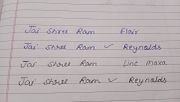 Jai Shree Ram Flair
Jai Shree Ram ✓ Reynolds
Jai Shree Ram Linc maxa
Jai Shree Ram ✓ Reynolds